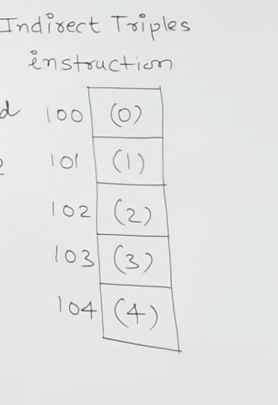 Indirect Triples
instruction
d 100 (0)
101 (1)
102 (2)
103 (3)
104 (4)